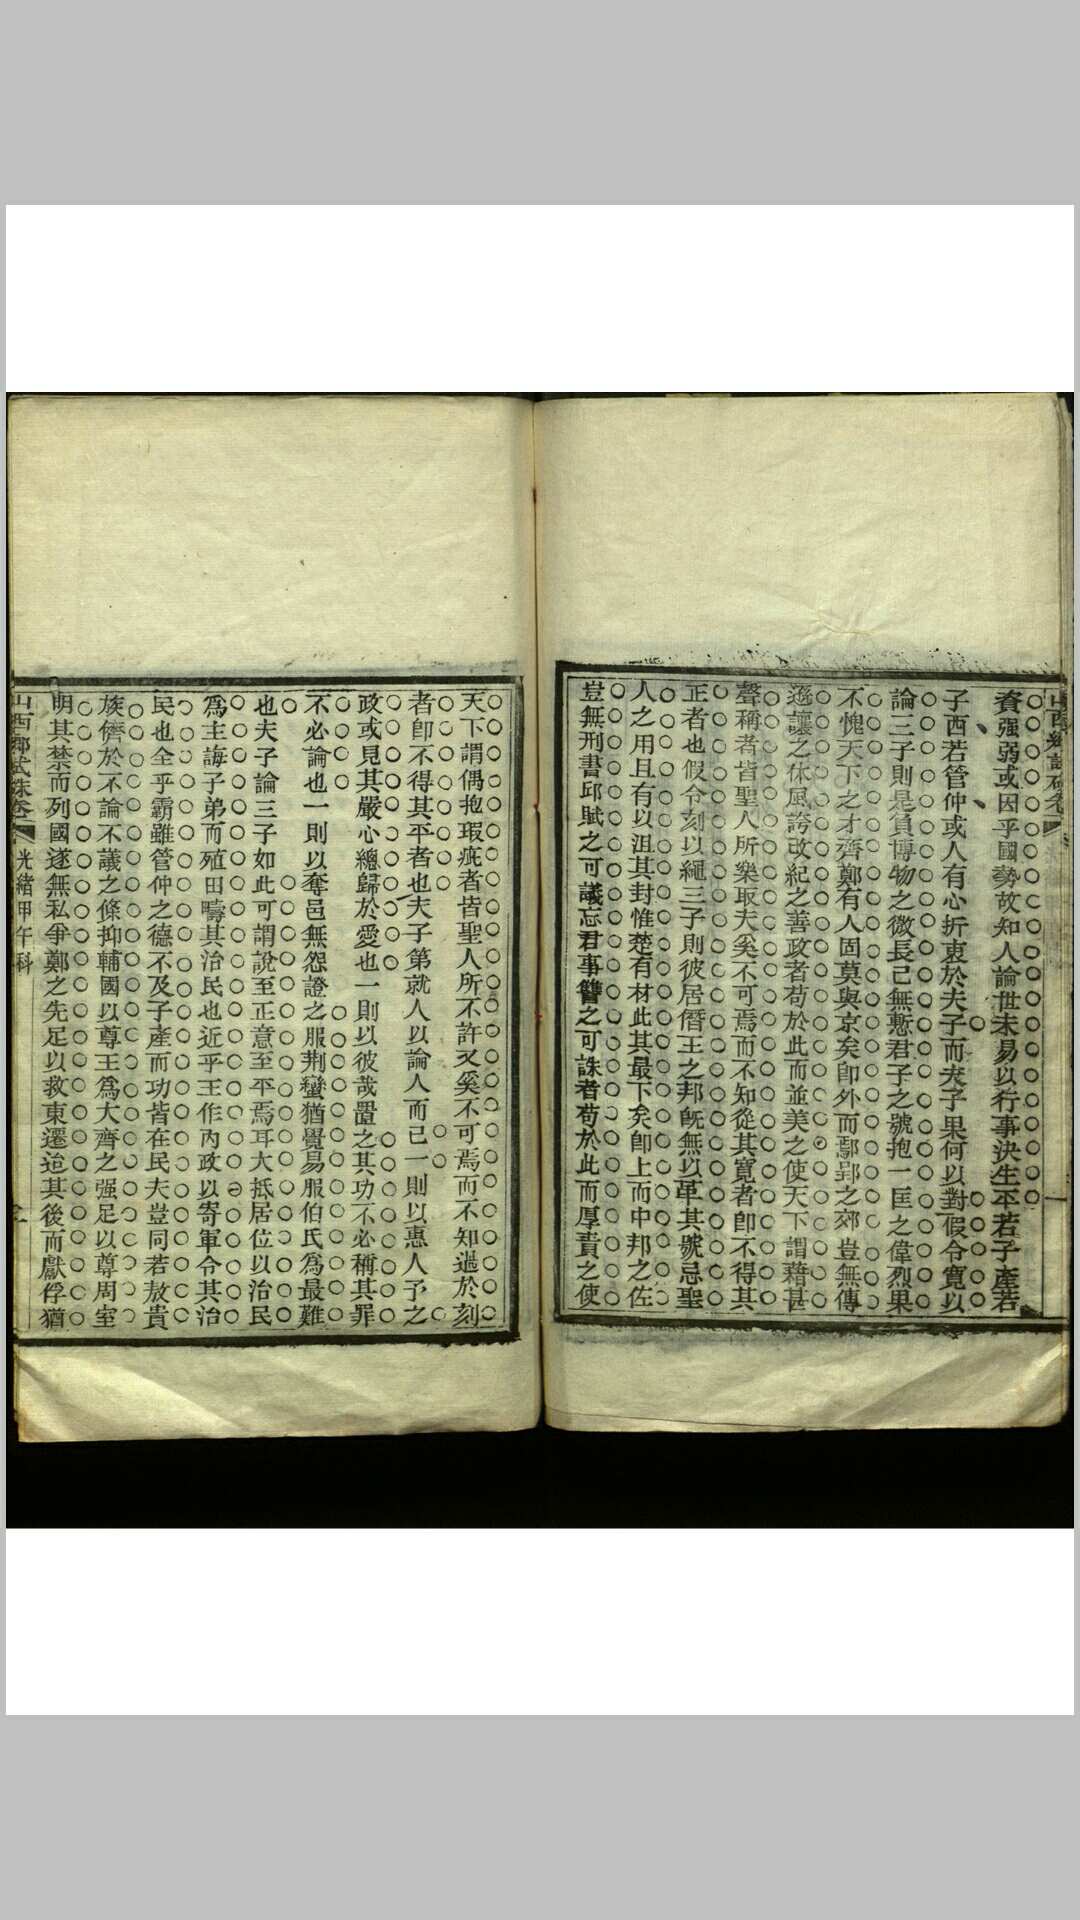 資强弱或因乎國勢故知人論世未易以行事決生平若子產若
子西若管仲或人有心折衷於夫子而夫子果何以對假令寬以
論三子則是負博物之微長已無慙君子之號抱一匡之偉烈果
不愧天下之才齊鄭有人固莫與京矣卽外而鄢郢之郊豈無傳
遜讓之休風誇改紀之善政者苟於此而並美之使天下謂藉甚
聲稱者皆聖人所樂取夫奚不可焉而不知從其寬者卽不得其
正者也假令刻以繩三子則彼居僭王之邦旣無以革其號忌聖
人之用且有以沮其封惟楚有材此其最下矣卽上而中邦之佐
豈無刑書邱賦之可議忘君事讐之可誅者苟於此而厚責之使
天下謂偶抱瑕疵者皆聖人所不許又奚不可焉而不知過於刻
者卽不得其平者也夫子第就人以論人而已一則以惠人予之
政或見其嚴心總歸於愛也一則以彼哉置之其功不必稱其罪
不必論也一則以奪邑無怨證之服荆蠻猶覺易服伯氏爲最難
也夫子論三子如此可謂說至正意至平焉耳大抵居位以治民
爲主誨子弟而殖田疇其治民也近乎王作內政以寄軍令其治
民也全乎霸雖管仲之德不及子產而功皆在民夫豈同若敖貴
族儕於不論不議之條抑輔國以尊王爲大齊之强足以尊周室
明其禁而列國遂無私爭鄭之先足以救東遷迨其後而獻俘猶
山西鄉試硃卷 光緒甲午科